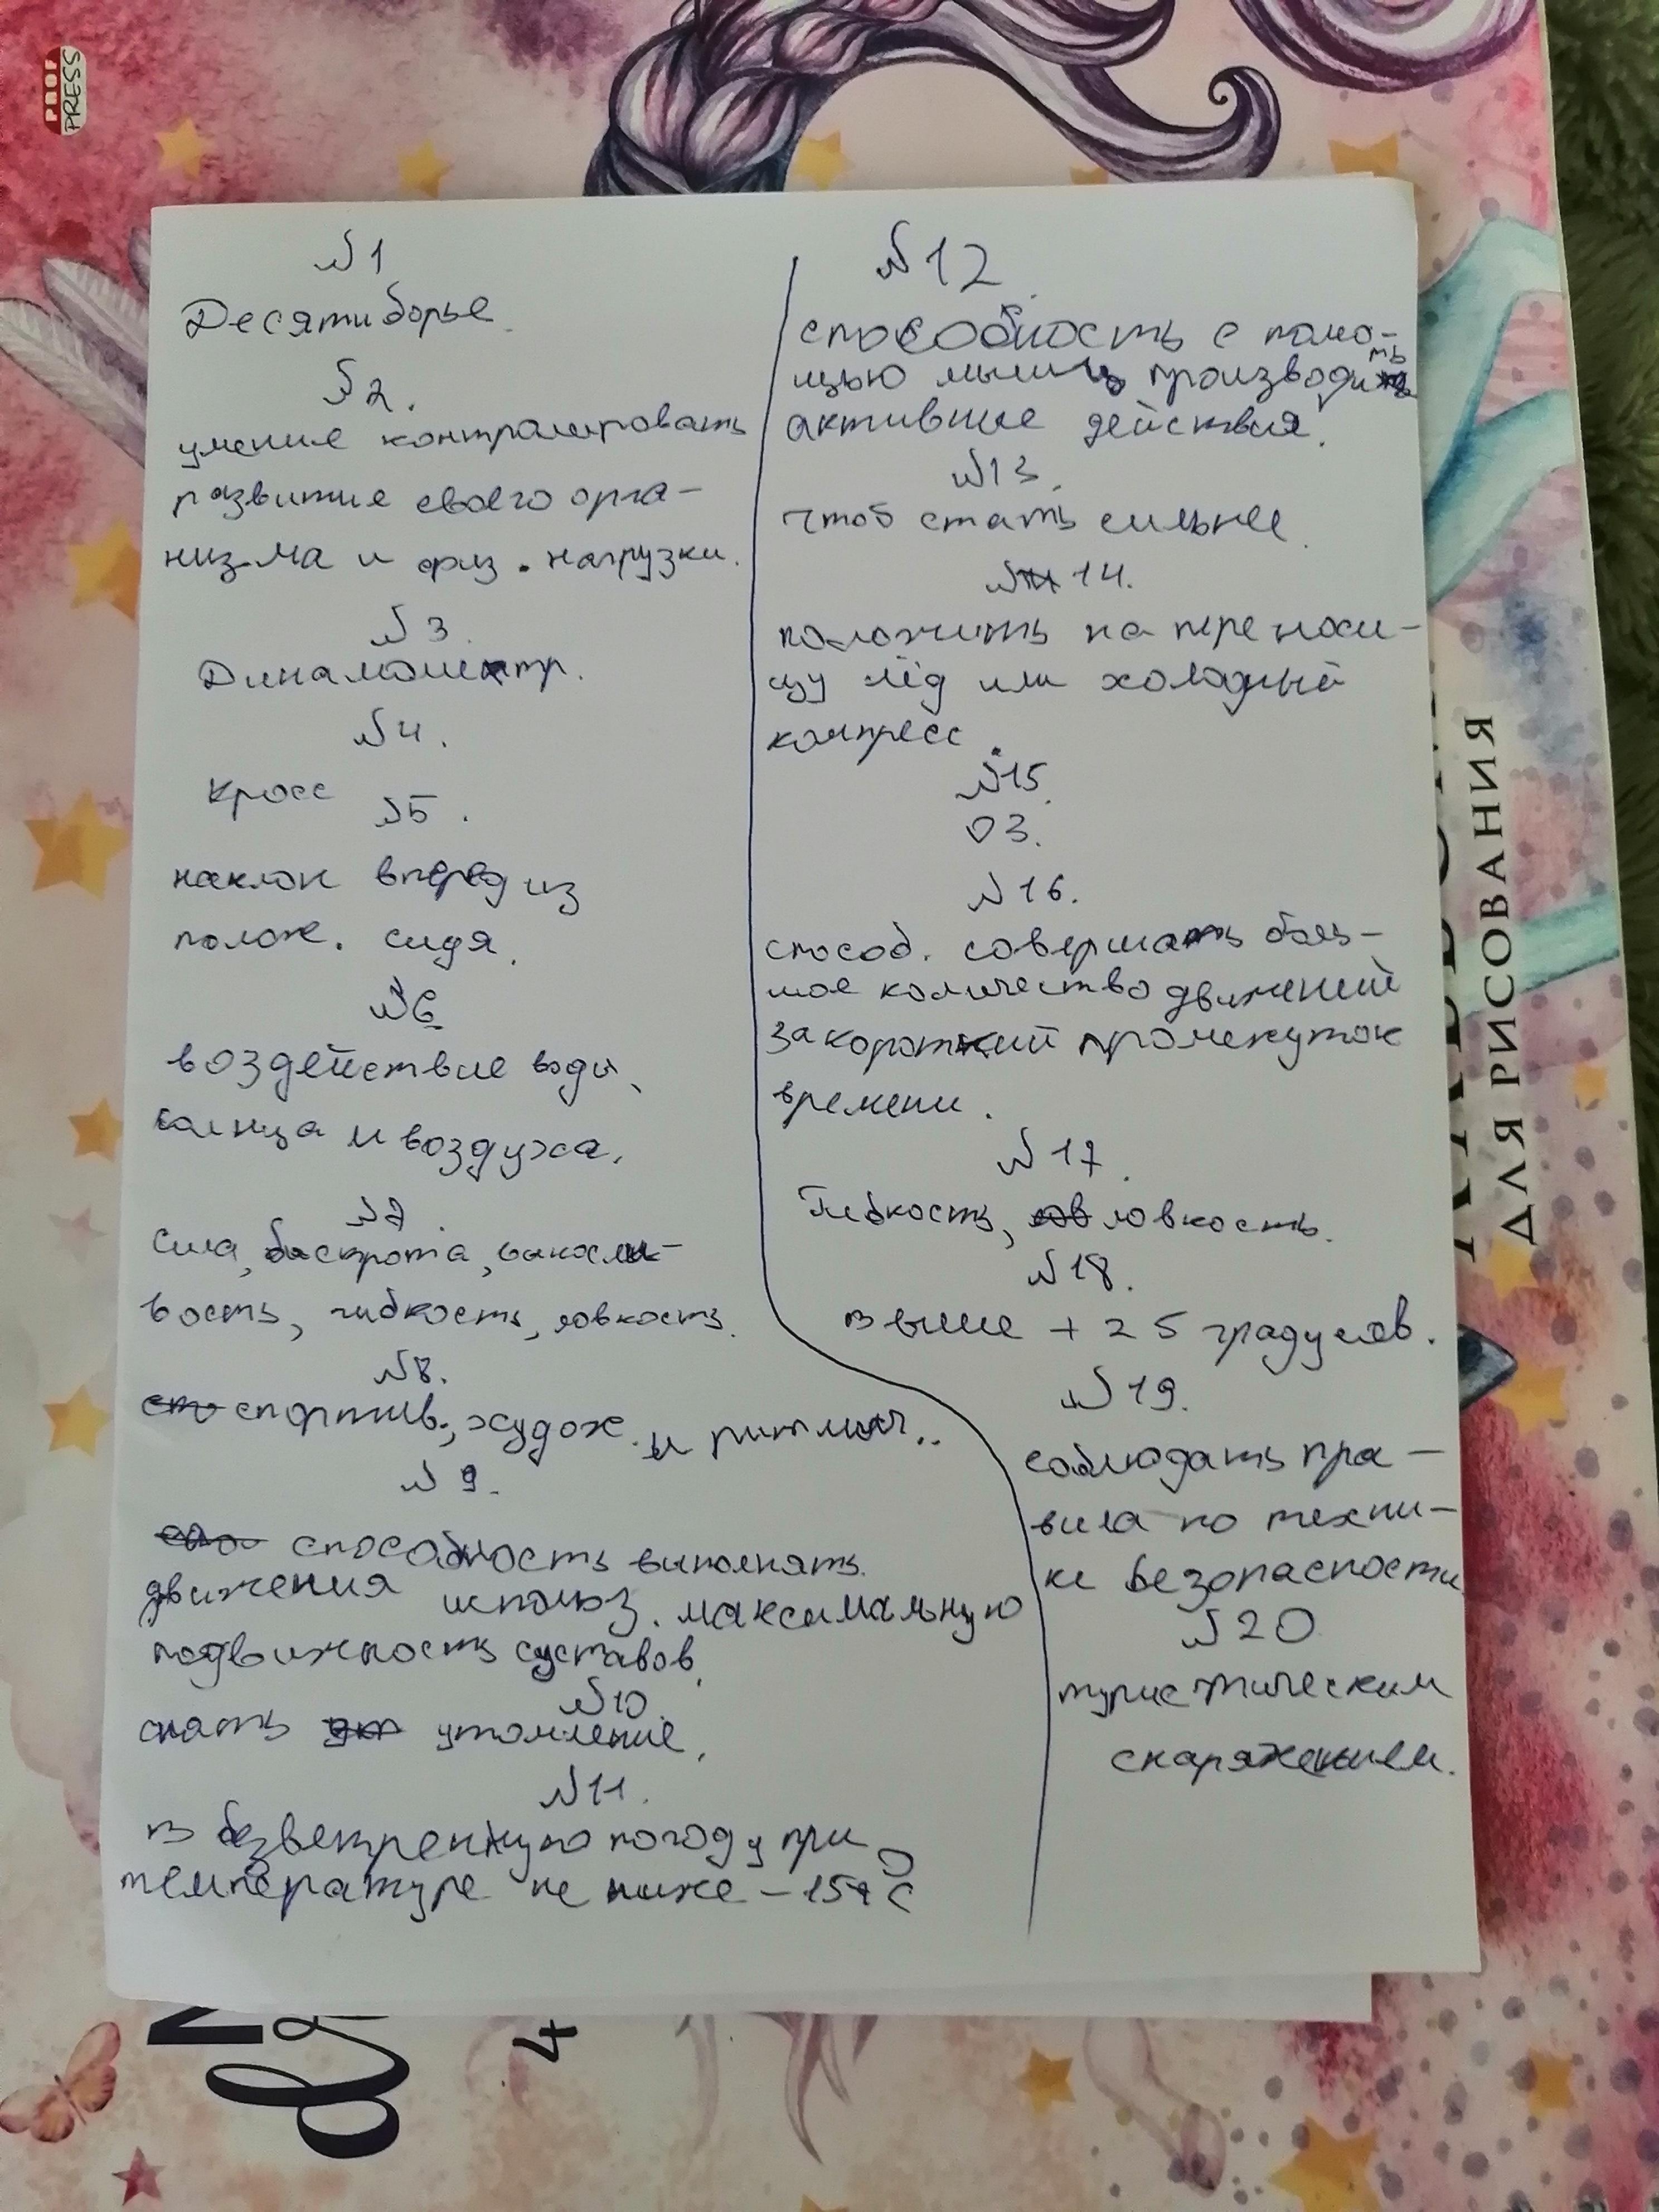 PROF
PRESS
№1
Десятиборье.
№2.
умение контролировать
развитие своего орга-
низма и физ. нагрузки.
№3.
Динамометр.
№4.
Кросс
№5.
наклон вперед из
полож. сидя.
№6
воздействие воды,
солнца и воздуха.
№7.
Сила, быстрота, выносли-
вость, гибкость, ловкость.
№8.
спортив., худож. и ритмич..
№9.
способность выполнять
движения использ. максимальную
подвижность суставов.
№10.
снять утомление.
№11.
в безветренную погоду при
температуре не ниже -15°C
№12.
способность с помо-
щью мышц производить
активные действия.
№13.
чтоб стать сильнее.
№14.
положить на переноси-
цу лёд или холодный
компресс.
№15.
03.
№16.
способ. совершать боль-
шое количество движений
за короткий промежуток
времени.
№17.
Гибкость, ловкость.
№18.
выше +25 градусов.
№19.
соблюдать пра-
вила по техни-
ке безопасности
№20
туристическим
снаряжением.
ДЛЯ РИСОВАНИЯ
4